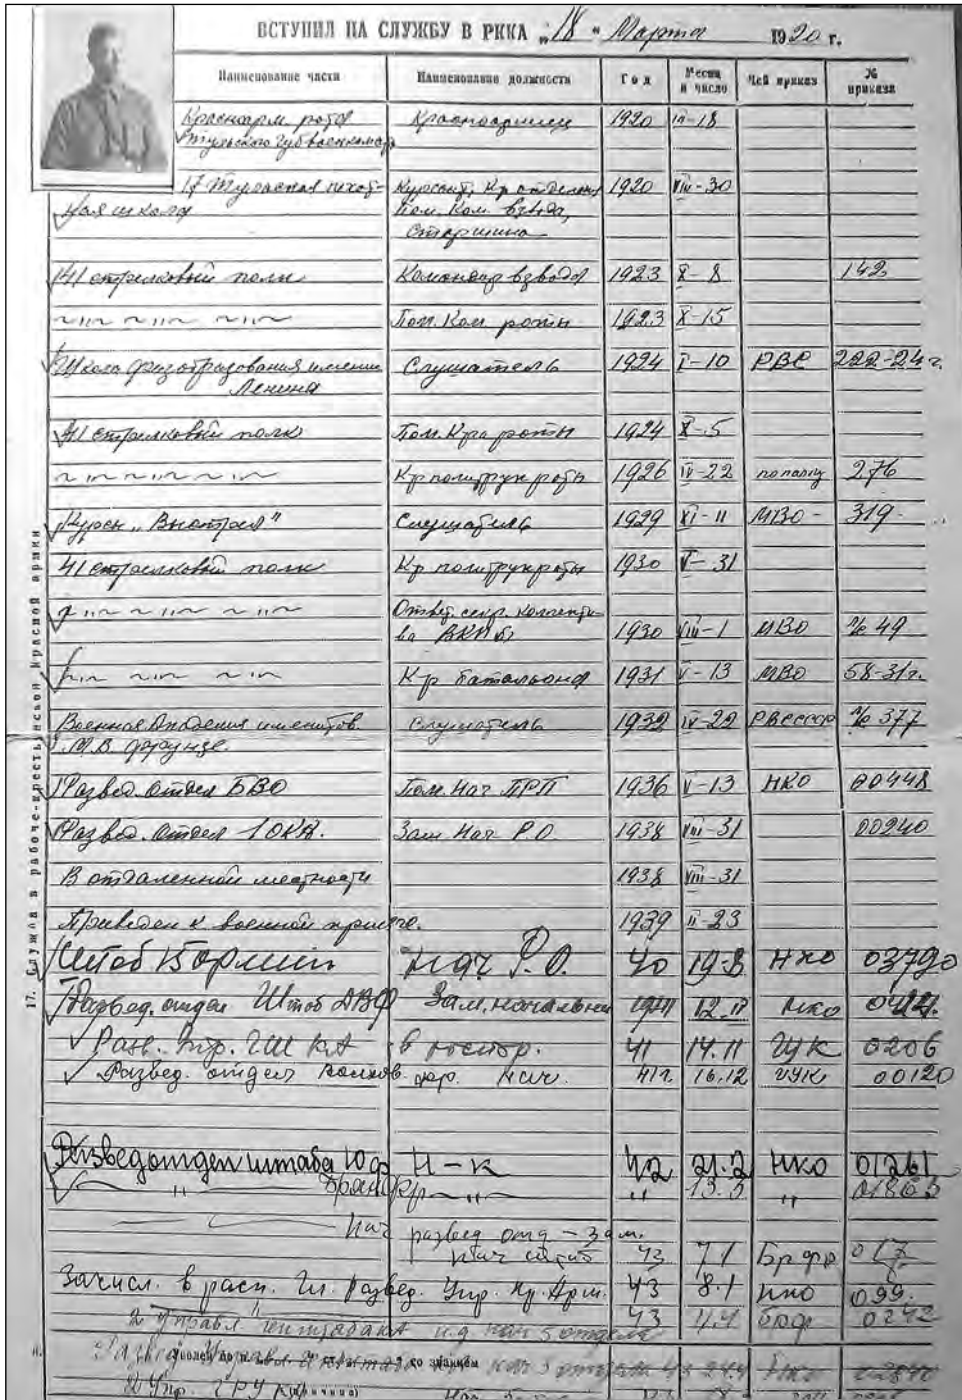 ВСТУПИЛ НА СЛУЖБУ В РККА „18“ Марта 1920 г.
Наименование части Наименование должности Год Месяц и число Чей приказ № приказа
Красноарм рота Красноармеец 1920 III-18
Тульского Губвоенкомата
17 Тульская пехот- Курсант, Кр отделения 1920 VIII-30
ная школа Пом. Ком. взвода,
Старшина
141 стрелковый полк Командир взвода 1923 X-8 142
〃 〃 〃 Пом. Ком. роты 1923 X-15
Школа физобразования имени Слушатель 1924 I-10 РВС 222-24 г.
Ленина
41 стрелковый полк Пом. К-ра роты 1924 X-5
〃 〃 〃 К-р политрук роты 1926 IV-22 по полку 276
Курсы „Выстрел“ Слушатель 1929 XI-11 МВО- 319-
41 стрелковый полк К-р политрук роты 1930 V-31
〃 〃 〃 Ответ. секр. коллекти-
ва ВКПб 1930 VIII-1 МВО № 49
〃 〃 〃 К-р батальона 1931 V-13 МВО 58-31г.
Военная Академия имени тов. Слушатель 1932 IV-22 РВСССР № 377
М.В. Фрунзе.
Развед. отдел БВО Пом. Нач ПРП 1936 V-13 НКО 00448
Развед. отдел 1 ОКА. Зам Нач Р.О 1938 VIII-31 00240
В отдаленной местности 1938 VIII-31
Приведен к военной присяге. 1939 II-23
Штаб 15 армии Нач Р.О. 40 19-8 НКО 03790
Развед. отдел Штаб ДВФ Зам. начальни 1941 12.II НКО
Разв. Упр. ГШ КА в распор. 41 14.11 ГУК 0206
Развед. отдел Волхов. фр. нач. 41г. 16.12 ГУК 00120
Разведотдел штаба Ю ф Н-к 42 21.2 НКО 01261
〃 Брян фр 〃 〃 13.5 〃
Нач развед отд - зам.
нач штаб 43 7.1 Бр фр 017
Зачисл. в расп. Гл. Развед. Упр. Кр. Арм. 43 8.1 НКО 099.
2 Управл генштаба КА и.д. нач 5 отдела 43 0242
2 Упр. ГРУ
17. Служба в рабоче-крестьянской Красной армии